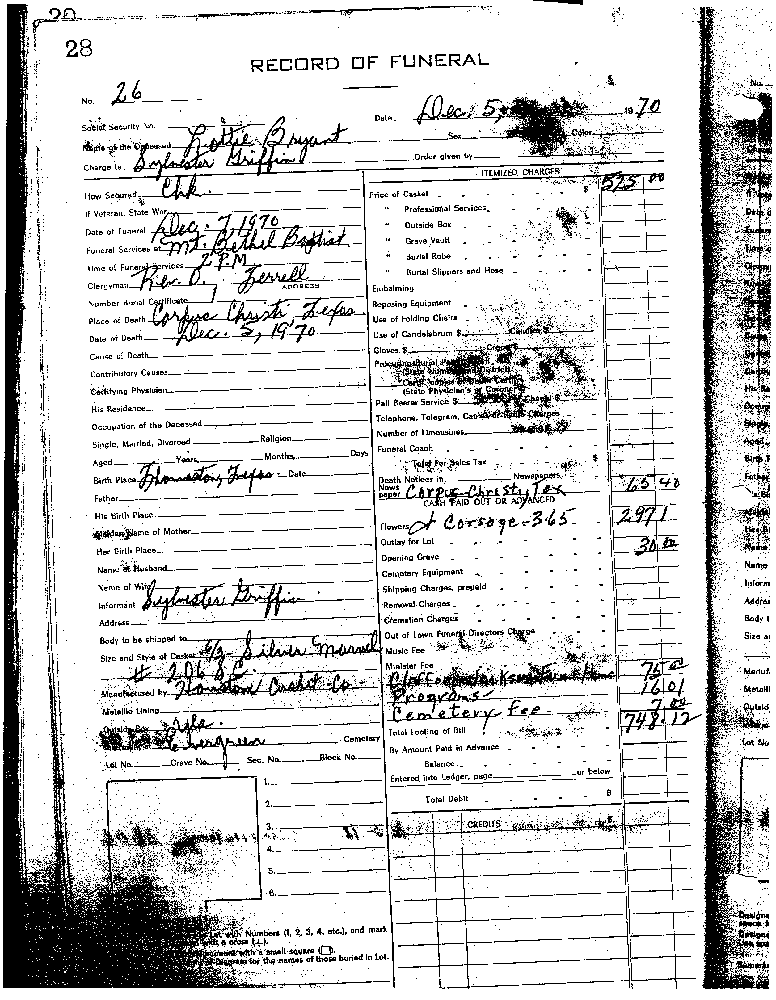 28
RECORD OF FUNERAL
No. 26
Date Dec. 5, 1970
Social Security No.
Name of the Deceased Lottie Bryant
Sex Color
Charge to Sylvester Griffin
Order given by
How Secured Chk.
If Veteran, State War
Date of Funeral Dec. 7, 1970
Funeral Services at Mt. Bethel Baptist
Time of Funeral Services 2 P.M
Clergyman Rev. O. Terrell
ADDRESS
Number Burial Certificate
Place of Death Corpus Christi, Texas
Date of Death Dec. 5, 1970
Cause of Death
Contributory Causes
Certifying Physician
His Residence
Occupation of the Deceased
Single, Married, Divorced Religion
Aged Years, Months, Days
Birth Place Houston, Texas Date
Father
His Birth Place
Maiden Name of Mother
Her Birth Place
Name of Husband
Name of Wife
Informant Sylvester Griffin
Address
Body to be shipped to
Size and Style of Casket 6/3 Silver
# 206
Manufactured by Houston Casket Co
Metallic Lining
Outside Box
Evergreen Cemetery
Lot No. Grave No. Sec. No. Block No.
1.
2.
3.
4.
5.
6.
Lot with Numbers (1, 2, 3, 4, etc.), and mark
with a cross
with a small square
of Diagram for the names of those buried in Lot.
ITEMIZED CHARGES
Price of Casket $ 525 00
" Professional Services
" Outside Box
" Grave Vault
" Burial Robe
" Burial Slippers and Hose
Embalming
Reposing Equipment
Use of Folding Chairs
Use of Candelabrum $ Candles $
Gloves $
(State Physician's or Coroner's)
Pall Bearer Service $
Telephone, Telegram, Charges
Number of Limousines
Funeral Coach
Total For Sales Tax $
Death Notices in Newspapers
News paper Corpus-Christi, Tex 65 40
CASH PAID OUT OR ADVANCED
Flowers + Corsage-3.65 29 71
Outlay for Lot
Opening Grave 30 00
Cemetery Equipment
Shipping Charges, prepaid
Removal Charges
Cremation Charges
Out of Town Funeral Directors Charge
Music Fee
Minister Fee
Funeral Home 75 00
Programs 16 01
Cemetery fee 7 00
Total Footing of Bill 748.12
By Amount Paid in Advance
Balance
Entered into Ledger, page or below
Total Debit $
CREDITS